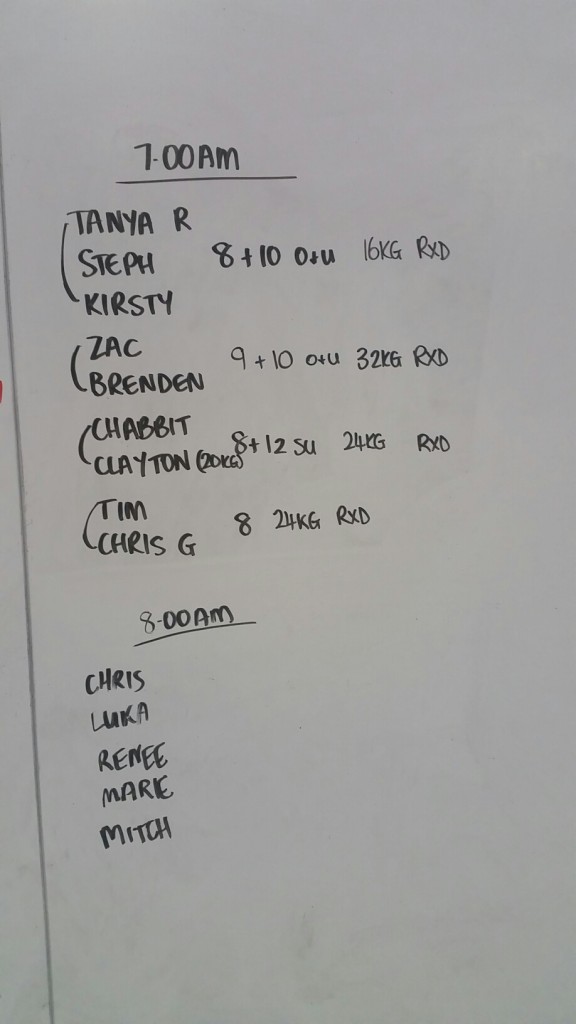 7.00AM
TANYA R
STEPH 8 + 10 O+U 16KG RXD
KIRSTY
ZAC
9 + 10 O+U 32KG RXD
BRENDEN
CHABBIT
8 + 12 SU 24KG RXD
CLAYTON (20KG)
TIM
8 24KG RXD
CHRIS G
8.00AM
CHRIS
LUKA
RENEE
MARK
MITCH